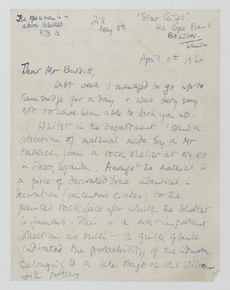 "Star Cliffs"
BOLTON
April 11th 1960
Dear Mr Burkitt,
Last week I managed to go up to
Cambridge for a day & was very sorry
not to have been able to look you up.
Whilst in the department I saw a
collection of material made by a Mr
from a rock shelter at NYERO
in Uganda. Amongst the material is
a piece of decorated bone identical in
decoration (concentric circles) to the
painted rock face for which the shelter
is famous. This is a most important
collection as such – a quick glance
indicated the probability of the industry
belonging to a late stage of
with pottery